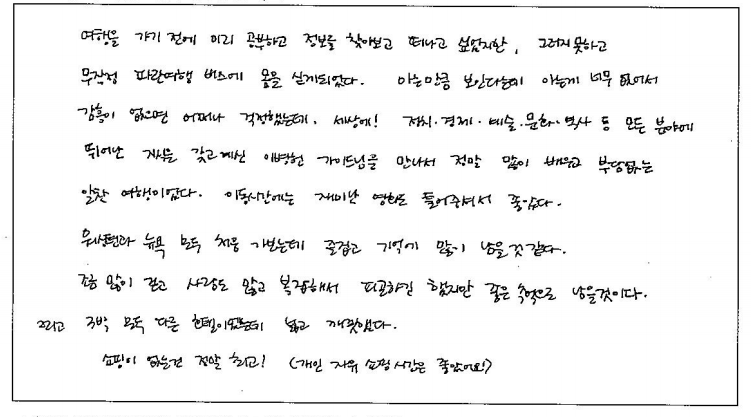 여행을 가기 전에 미리 공부하고 정보를 찾아보고 떠나고 싶었지만, 그러지못하고
무작정 파란여행 버스에 몸을 싣게되었다. 아는만큼 보인다는데 아는게 너무 없어서
감흥이 없으면 어쩌나 걱정했는데, 세상에! 정치·경제·예술·문화·역사 등 모든 분야에
뛰어난 지식을 갖고계신 이병헌 가이드님을 만나서 정말 많이 배우고 부담없는
알찬 여행이었다. 이동시간에는 재미난 영화도 틀어주셔서 좋았다.
워싱턴과 뉴욕 모두 처음 가보는데 즐겁고 기억에 많이 남을것 같다.
조금 많이 걷고 사람도 많고 복잡해서 피곤하긴 했지만 좋은 추억으로 남을것이다.
그리고 3박 모두 다른 호텔이었는데 넓고 깨끗했다.
쇼핑이 없는건 정말 최고! (개인 자유 쇼핑 시간은 좋았어요!)